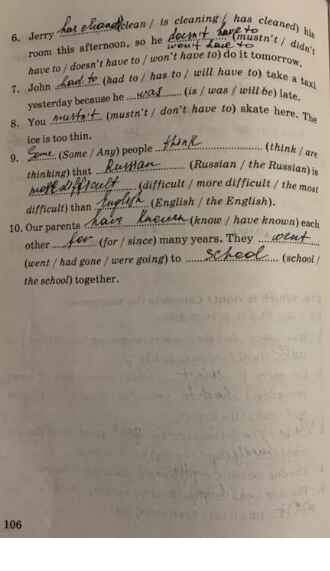 6. Jerry has cleaned (clean / is cleaning / has cleaned) his
room this afternoon, so he doesn't have to (mustn't / didn't
won't have to
have to / doesn't have to / won't have to) do it tomorrow.
7. John had to (had to / has to / will have to) take a taxi
yesterday because he was (is / was / will be) late.
8. You mustn't (mustn't / don't have to) skate here. The
ice is too thin.
9. Some (Some / Any) people think (think / are
thinking) that Russian (Russian / the Russian) is
more difficult (difficult / more difficult / the most
difficult) than English (English / the English).
10. Our parents have known (know / have known) each
other for (for / since) many years. They went
(went / had gone / were going) to school (school /
the school) together.
106